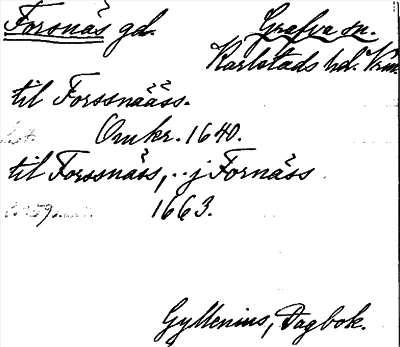 Forsnäs gd. Grafva sn.
Karlstads hd. Vrm.
til Forssnääss.
Omkr. 1640.
til Forssnäss, .. j Fornäss
1663.
Gyllenius, Dagbok.